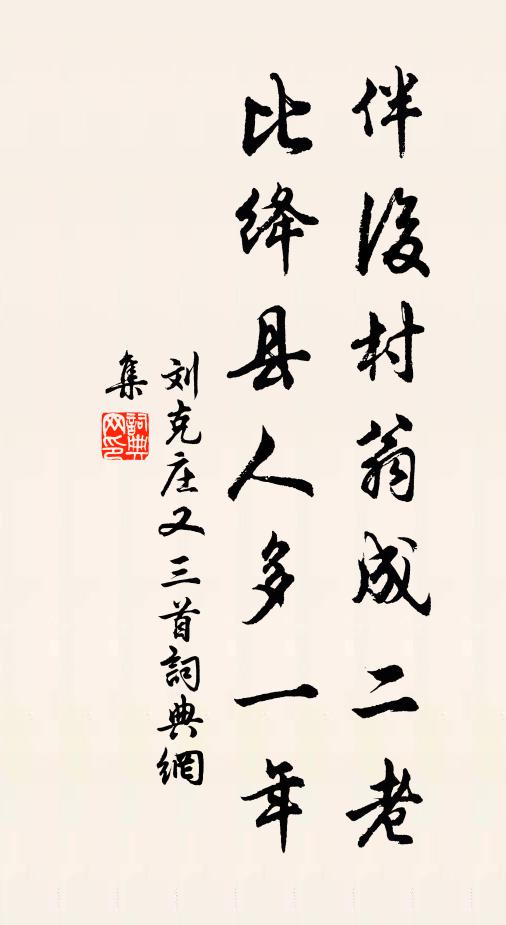 伴後村翁成二老
比绛县人多一年
刘克庄又三首詞典網
集
詞典
网印